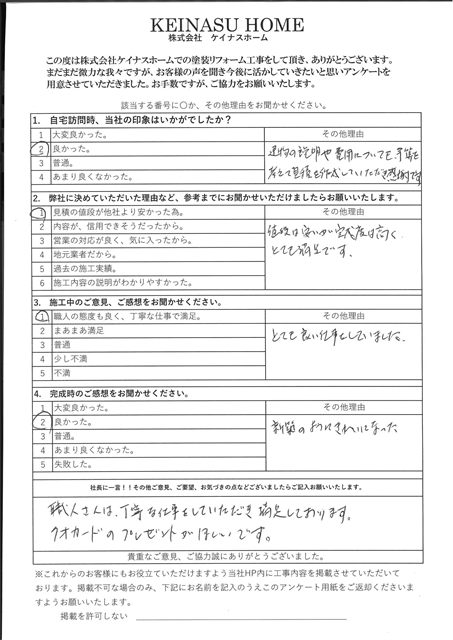 KEINASU HOME
株式会社 ケイナスホーム
この度は株式会社ケイナスホームでの塗装リフォーム工事をして頂き、ありがとうございます。
まだまだ微力な我々ですが、お客様の声を聞き今後に活かしていきたいと思いアンケートを
用意させていただきました。お手数ですが、ご協力をお願いいたします。
該当する番号に〇か、その他理由をお聞かせください。
1. 自宅訪問時、当社の印象はいかがでしたか？
1 大変良かった。 その他理由
2 良かった。
3 普通。
4 あまり良くなかった。
建物の説明や費用についても予算を
考えて見積を作成していただき感謝です
2. 弊社に決めていただいた理由など、参考までにお聞かせいただけましたらお願いいたします。
1 見積の値段が他社より安かった為。 その他理由
2 内容が、信用できそうだったから。
3 営業の対応が良く、気に入ったから。
4 地元業者だから。
5 過去の施工実績。
6 施工内容の説明がわかりやすかった。
値段は安いが完成度は高く
とても満足です。
3. 施工中のご意見、ご感想をお聞かせください。
1 職人の態度も良く、丁寧な仕事で満足。 その他理由
2 まあまあ満足
3 普通
4 少し不満
5 不満
とても良い仕事をしていました。
4. 完成時のご感想をお聞かせください。
1 大変良かった。 その他理由
2 良かった。
3 普通。
4 あまり良くなかった。
5 失敗した。
新築のようにきれいになった
社長に一言！！その他ご意見、ご要望、お気づきの点などございましたらご記入お願いいたします。
職人さんは、丁寧な仕事をしていただき満足しております。
クオカードのプレゼントがほしいです。
貴重なご意見、ご協力誠にありがとうございました。
※これからのお客様にもお役立ていただけますよう当社HP内に工事内容を掲載させていただいて
おります。掲載不可な場合のみ、下記にお名前を記入のうえこのアンケート用紙をご返却くださいま
すようお願いいたします。
掲載を許可しない